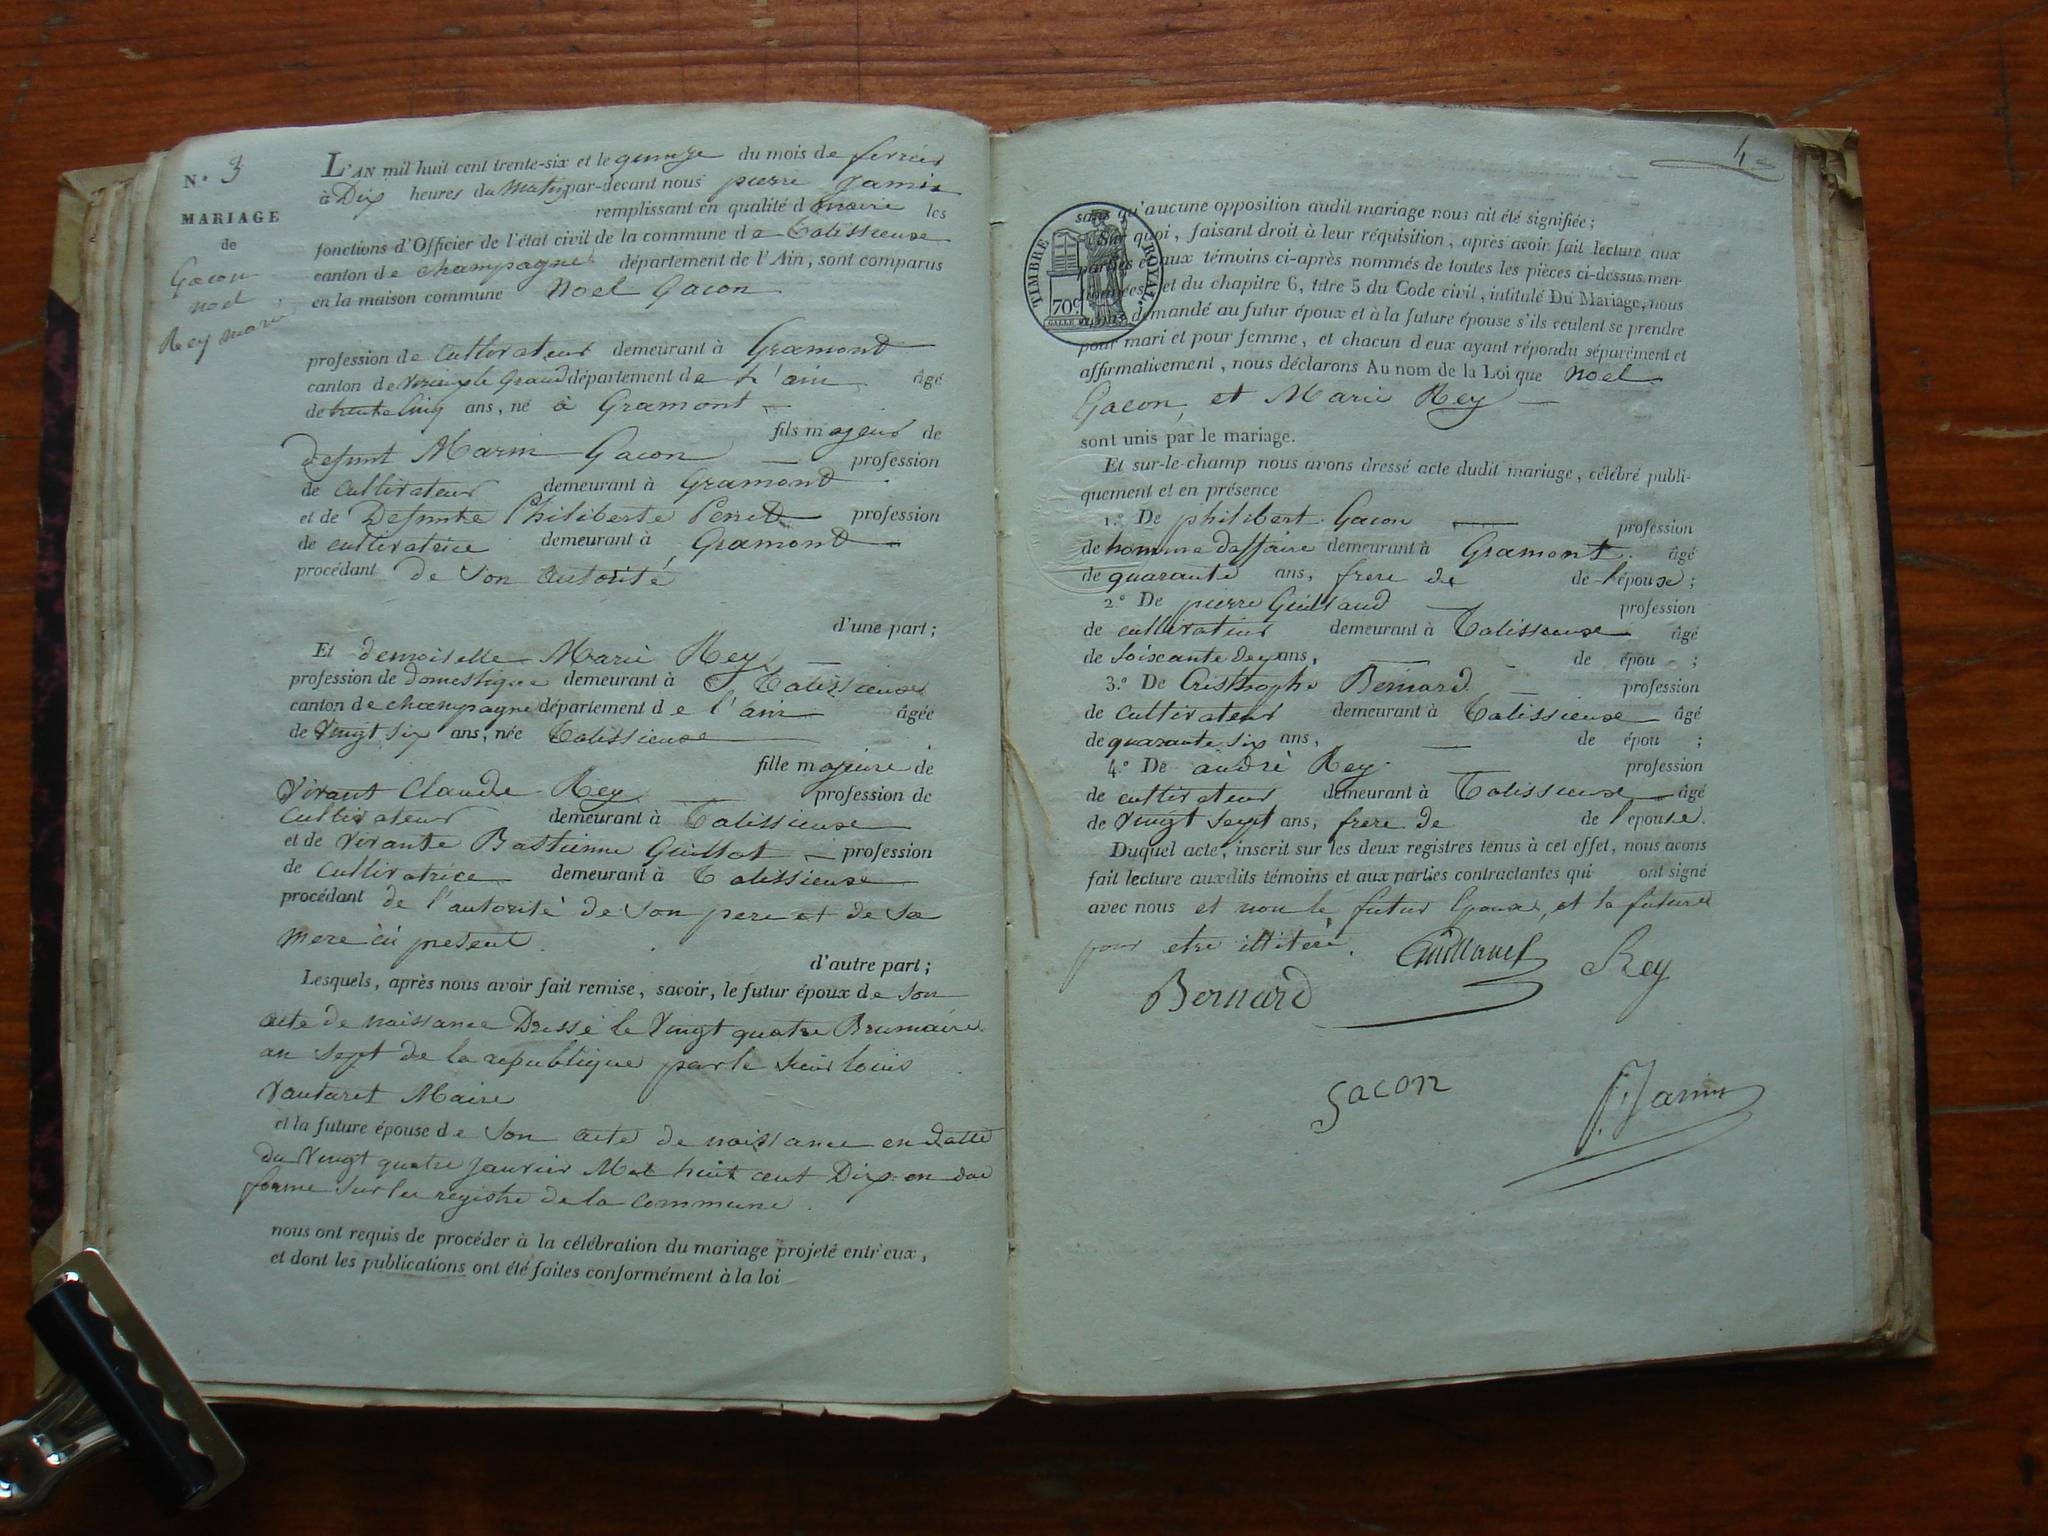 N.° 3
MARIAGE
de
Gacon
noel
Rey marie
L'AN mil huit cent trente-six et le quinze du mois de fevrier
à Dix heures du Matin par-devant nous pierre Jamin
remplissant en qualité d maire les
fonctions d'Officier de l'état civil de la commune de Talissieuse
canton de champagne département de l'Ain, sont comparus
en la maison commune Noel Gacon
profession de Cultivateur demeurant à Gramont
canton de Virieu le Grand département de L'ain âgé
de trente Cinq ans, né à Gramont
fils majeur de
defunt Marin Gacon profession
de Cultivateur demeurant à Gramond
et de Defunte Philiberte Perret profession
de cultivatrice demeurant à Gramond
procédant de Son autorité
d'une part;
Et demoiselle Marie Rey
profession de domestique demeurant à Talissieuse
canton de champagne département de l'ain âgée
de Vingt Six ans, née Talissieuse
fille majeure de
Vivant Claude Rey profession de
Cultivateur demeurant à Talissieuse
et de Vivante Bastienne Guillot profession
de Cultivatrice demeurant à Talissieuse
procédant de l'autorité de Son pere et de Sa
mere ici present
d'autre part;
Lesquels, après nous avoir fait remise, savoir, le futur époux de Son
acte de naissance Dressé le Vingt quatre Brumaire
an Sept de la republique par le Sieur louis
Vautaret Maire
et la future épouse de Son acte de naissance en datte
du Vingt quatre Janvier Mil huit cent Dix en due
forme Sur les registre de la Commune
nous ont requis de procéder à la célébration du mariage projeté entr'eux,
et dont les publications ont été faites conformément à la loi
4
TIMBRE ROYAL
70c
sans qu'aucune opposition audit mariage nous ait été signifiée;
Sur quoi, faisant droit à leur réquisition, après avoir fait lecture aux
parties et aux témoins ci-après nommés de toutes les pièces ci-dessus men-
tionnées, et du chapitre 6, titre 5 du Code civil, intitulé Du Mariage, nous
avons demandé au futur époux et à la future épouse s'ils veulent se prendre
pour mari et pour femme, et chacun d'eux ayant répondu séparément et
affirmativement, nous déclarons Au nom de la Loi que Noel
Gacon, et Marie Rey
sont unis par le mariage.
Et sur-le-champ nous avons dressé acte dudit mariage, célébré publi-
quement et en présence
1.° De philibert Gacon profession
de homme daffaire demeurant à Gramont âgé
de quarante ans, frere de de l'épouse;
2.° De pierre Guilland profession
de cultivateur demeurant à Talissieuse âgé
de Soixante Dix ans, de épou ;
3.° De Cristhophe Bernard profession
de Cultivateur demeurant à Talissieuse âgé
de quarante six ans, de épou ;
4.° De andrè Rey profession
de cultivateur demeurant à Talissieuse âgé
de Vingt Sept ans, frere de de l'epouse.
Duquel acte, inscrit sur les deux registres tenus à cet effet, nous avons
fait lecture auxdits témoins et aux parties contractantes qui ont signé
avec nous et non le futur Epoux, et la future
pour etre illiteré.
Rey
Bernard
Gacon
Jamin